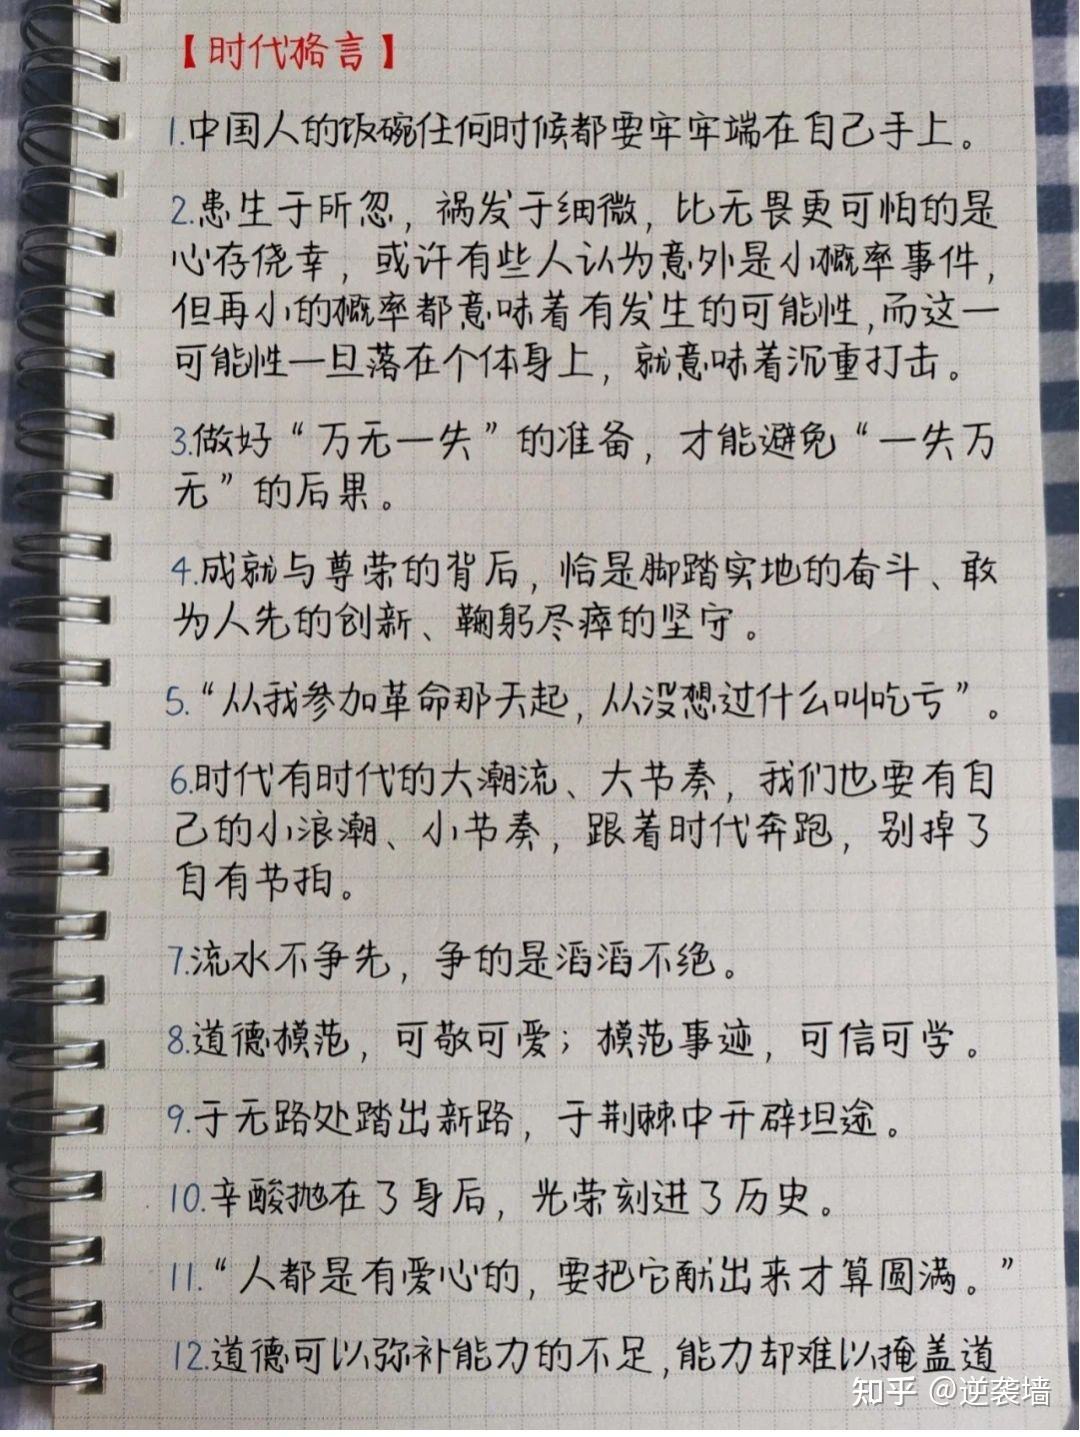 【时代格言】
1.中国人的饭碗任何时候都要牢牢端在自己手上。
2.患生于所忽，祸发于细微，比无畏更可怕的是
心存侥幸，或许有些人认为意外是小概率事件，
但再小的概率都意味着有发生的可能性,而这一
可能性一旦落在个体身上，就意味着沉重打击。
3.做好“万无一失”的准备，才能避免“一失万
无”的后果。
4.成就与尊荣的背后，恰是脚踏实地的奋斗、敢
为人先的创新、鞠躬尽瘁的坚守。
5.“从我参加革命那天起，从没想过什么叫吃亏”。
6.时代有时代的大潮流、大节奏，我们也要有自
己的小浪潮、小节奏，跟着时代奔跑，别掉了
自有节拍。
7.流水不争先，争的是滔滔不绝。
8.道德模范，可敬可爱；模范事迹，可信可学。
9.于无路处踏出新路，于荆棘中开辟坦途。
10.辛酸抛在了身后，光荣刻进了历史。
11.“人都是有爱心的，要把它献出来才算圆满。”
12.道德可以弥补能力的不足,能力却难以掩盖道
知乎 @逆袭墙